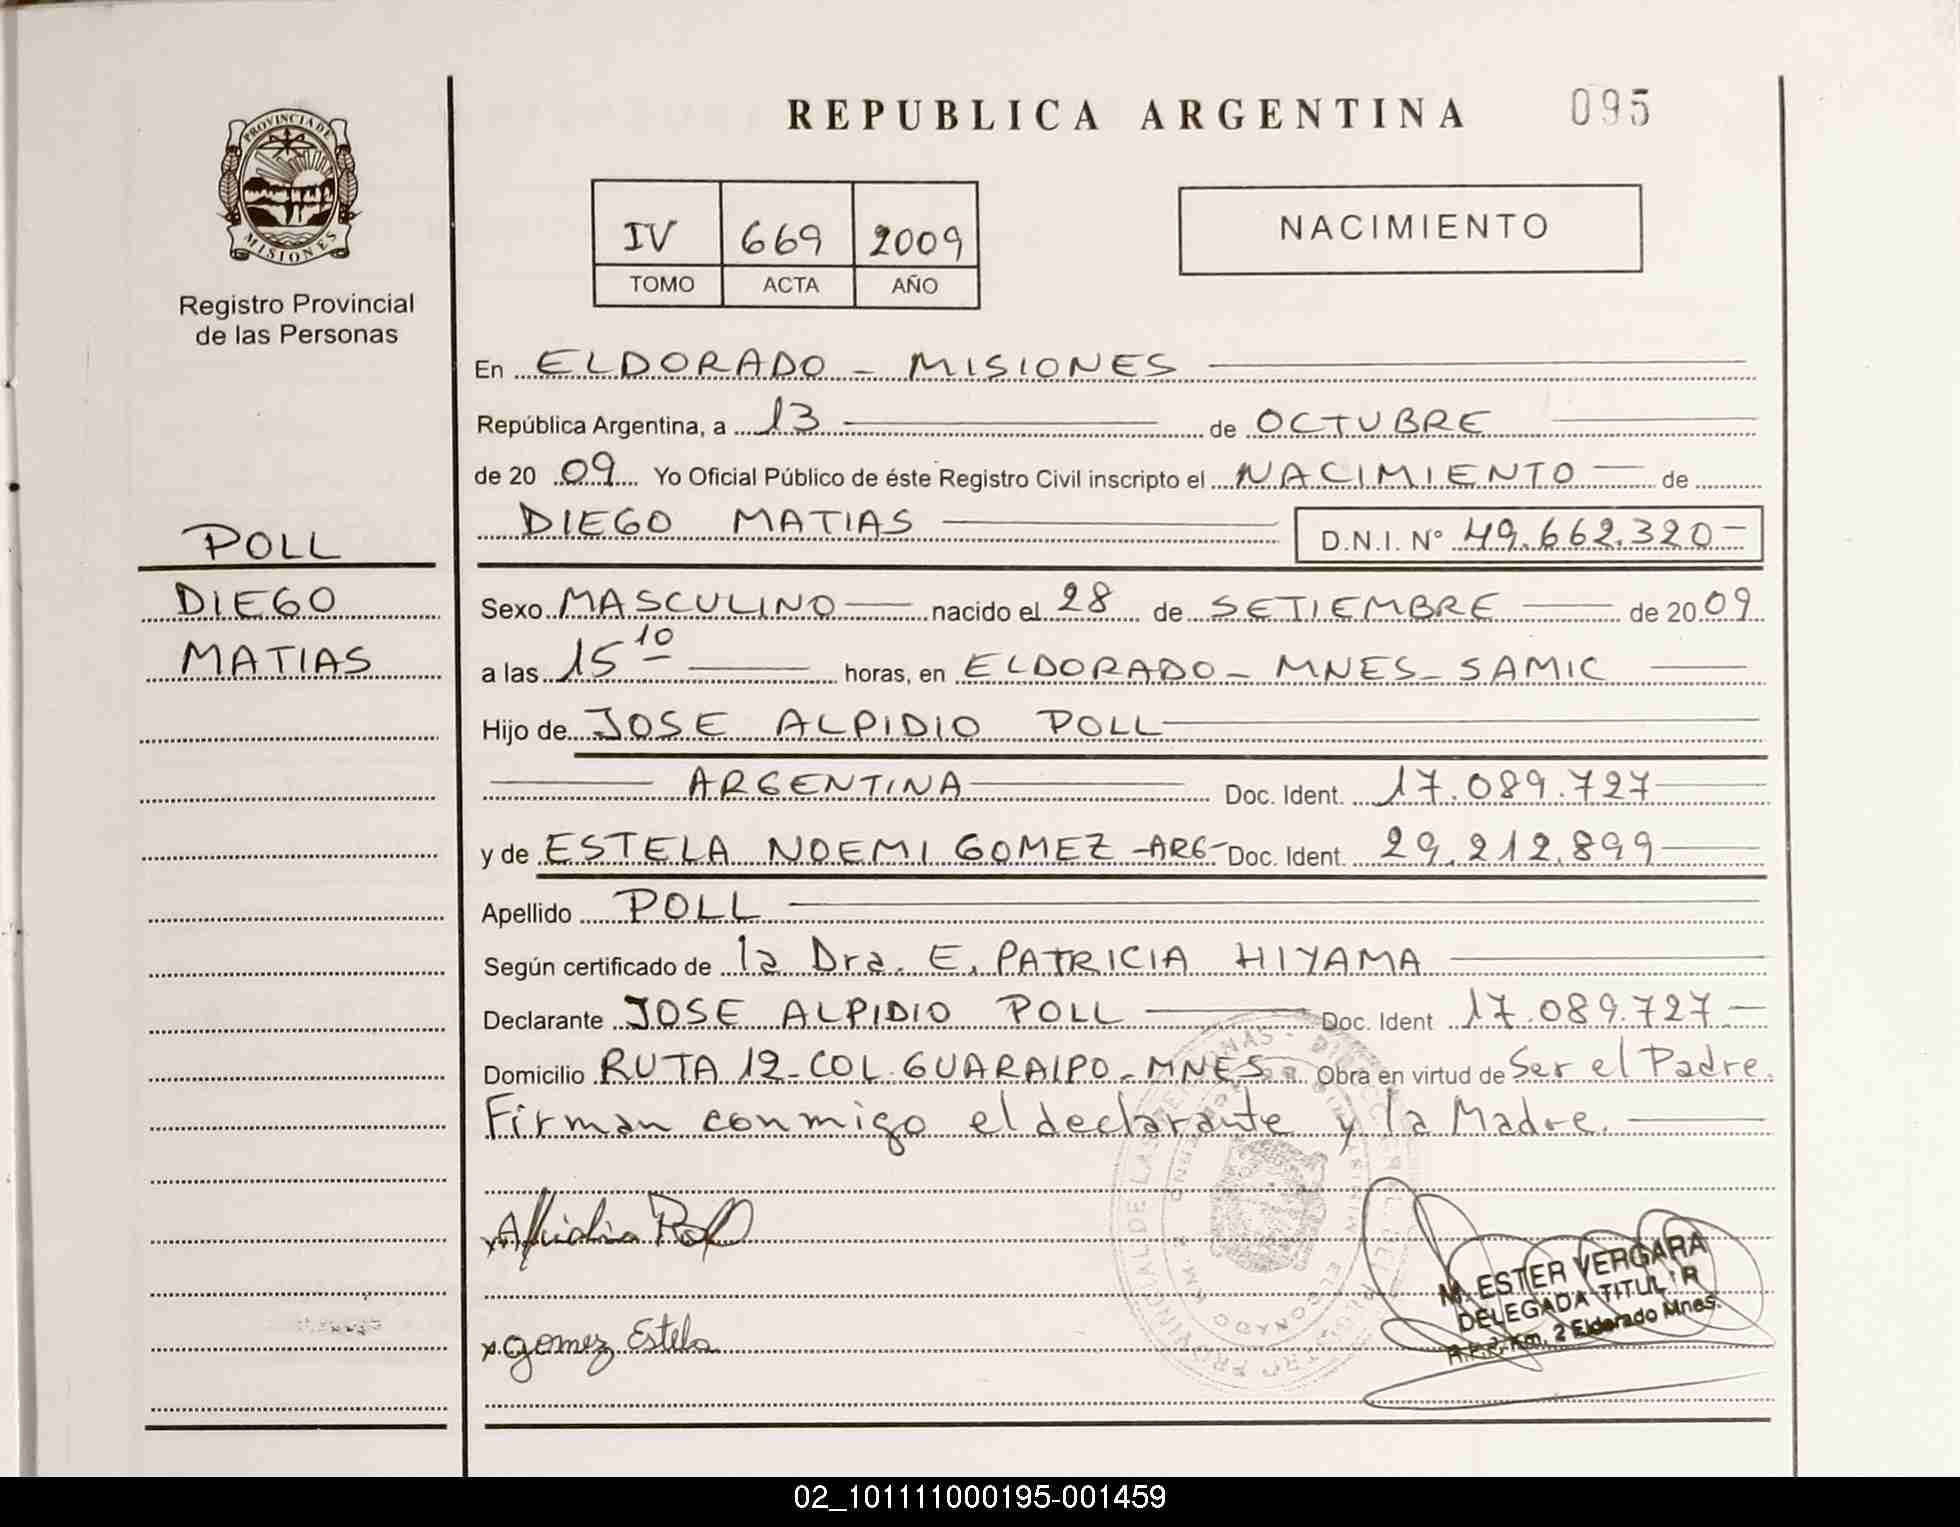 REPUBLICA ARGENTINA
095
PROVINCIA DE
MISIONES
Registro Provincial
de las Personas
IV 669 2009
TOMO ACTA AÑO
NACIMIENTO
En ELDORADO - MISIONES
República Argentina, a 13 de OCTUBRE
de 20 09 Yo Oficial Público de éste Registro Civil inscripto el NACIMIENTO de
DIEGO MATIAS D.N.I. N° 49.662.320-
POLL
DIEGO
MATIAS
Sexo MASCULINO nacido el 28 de SETIEMBRE de 20 09
a las 15 10 horas, en ELDORADO - MNES - SAMIC
Hijo de JOSE ALPIDIO POLL
ARGENTINA Doc. Ident. 17.089.727
y de ESTELA NOEMI GOMEZ -ARG- Doc. Ident. 29.212.899
Apellido POLL
Según certificado de la Dra. E. PATRICIA HIYAMA
Declarante JOSE ALPIDIO POLL Doc. Ident 17.089.727.-
Domicilio RUTA 12 - COL. GUARAIPO - MNES Obra en virtud de Ser el Padre.
Firman conmigo el declarante y la Madre.
x Alpidio Poll
M. ESTER VERGARA
DELEGADA TITUL R
R.P.P. Km. 2 Eldorado Mnes.
x gomez Estela
02_101111000195-001459